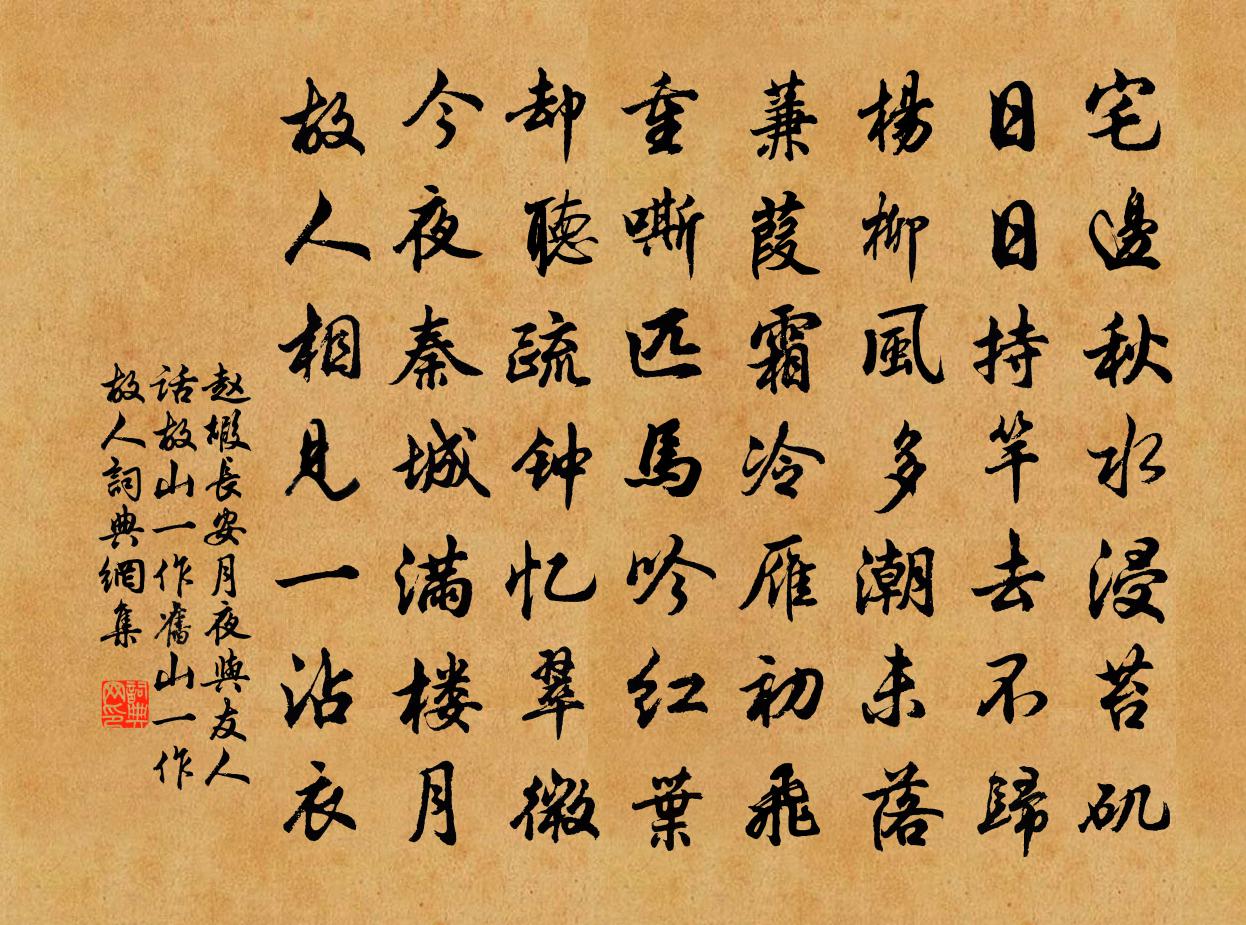 宅邊秋水浸苔矶
日日持竿去不歸
楊柳風多潮未落
蒹葭霜冷雁初飛
重嘶匹馬吟红葉
却聽疏钟忆翠微
今夜秦城满楼月
故人相見一沾衣
赵嘏長安月夜與友人
话故山一作舊山一作
故人詞典網集
詞典
网印